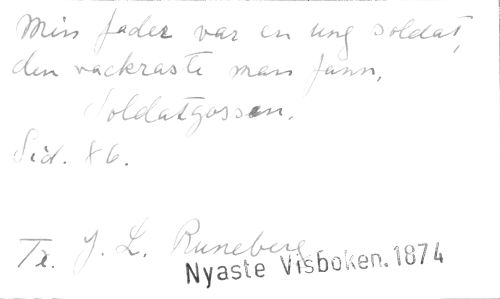 Min fader var en ung soldat,
den vackraste man fann,
Soldatgossen.
Sid. 86.
Tr. J. L. Runeberg
Nyaste Visboken. 1874